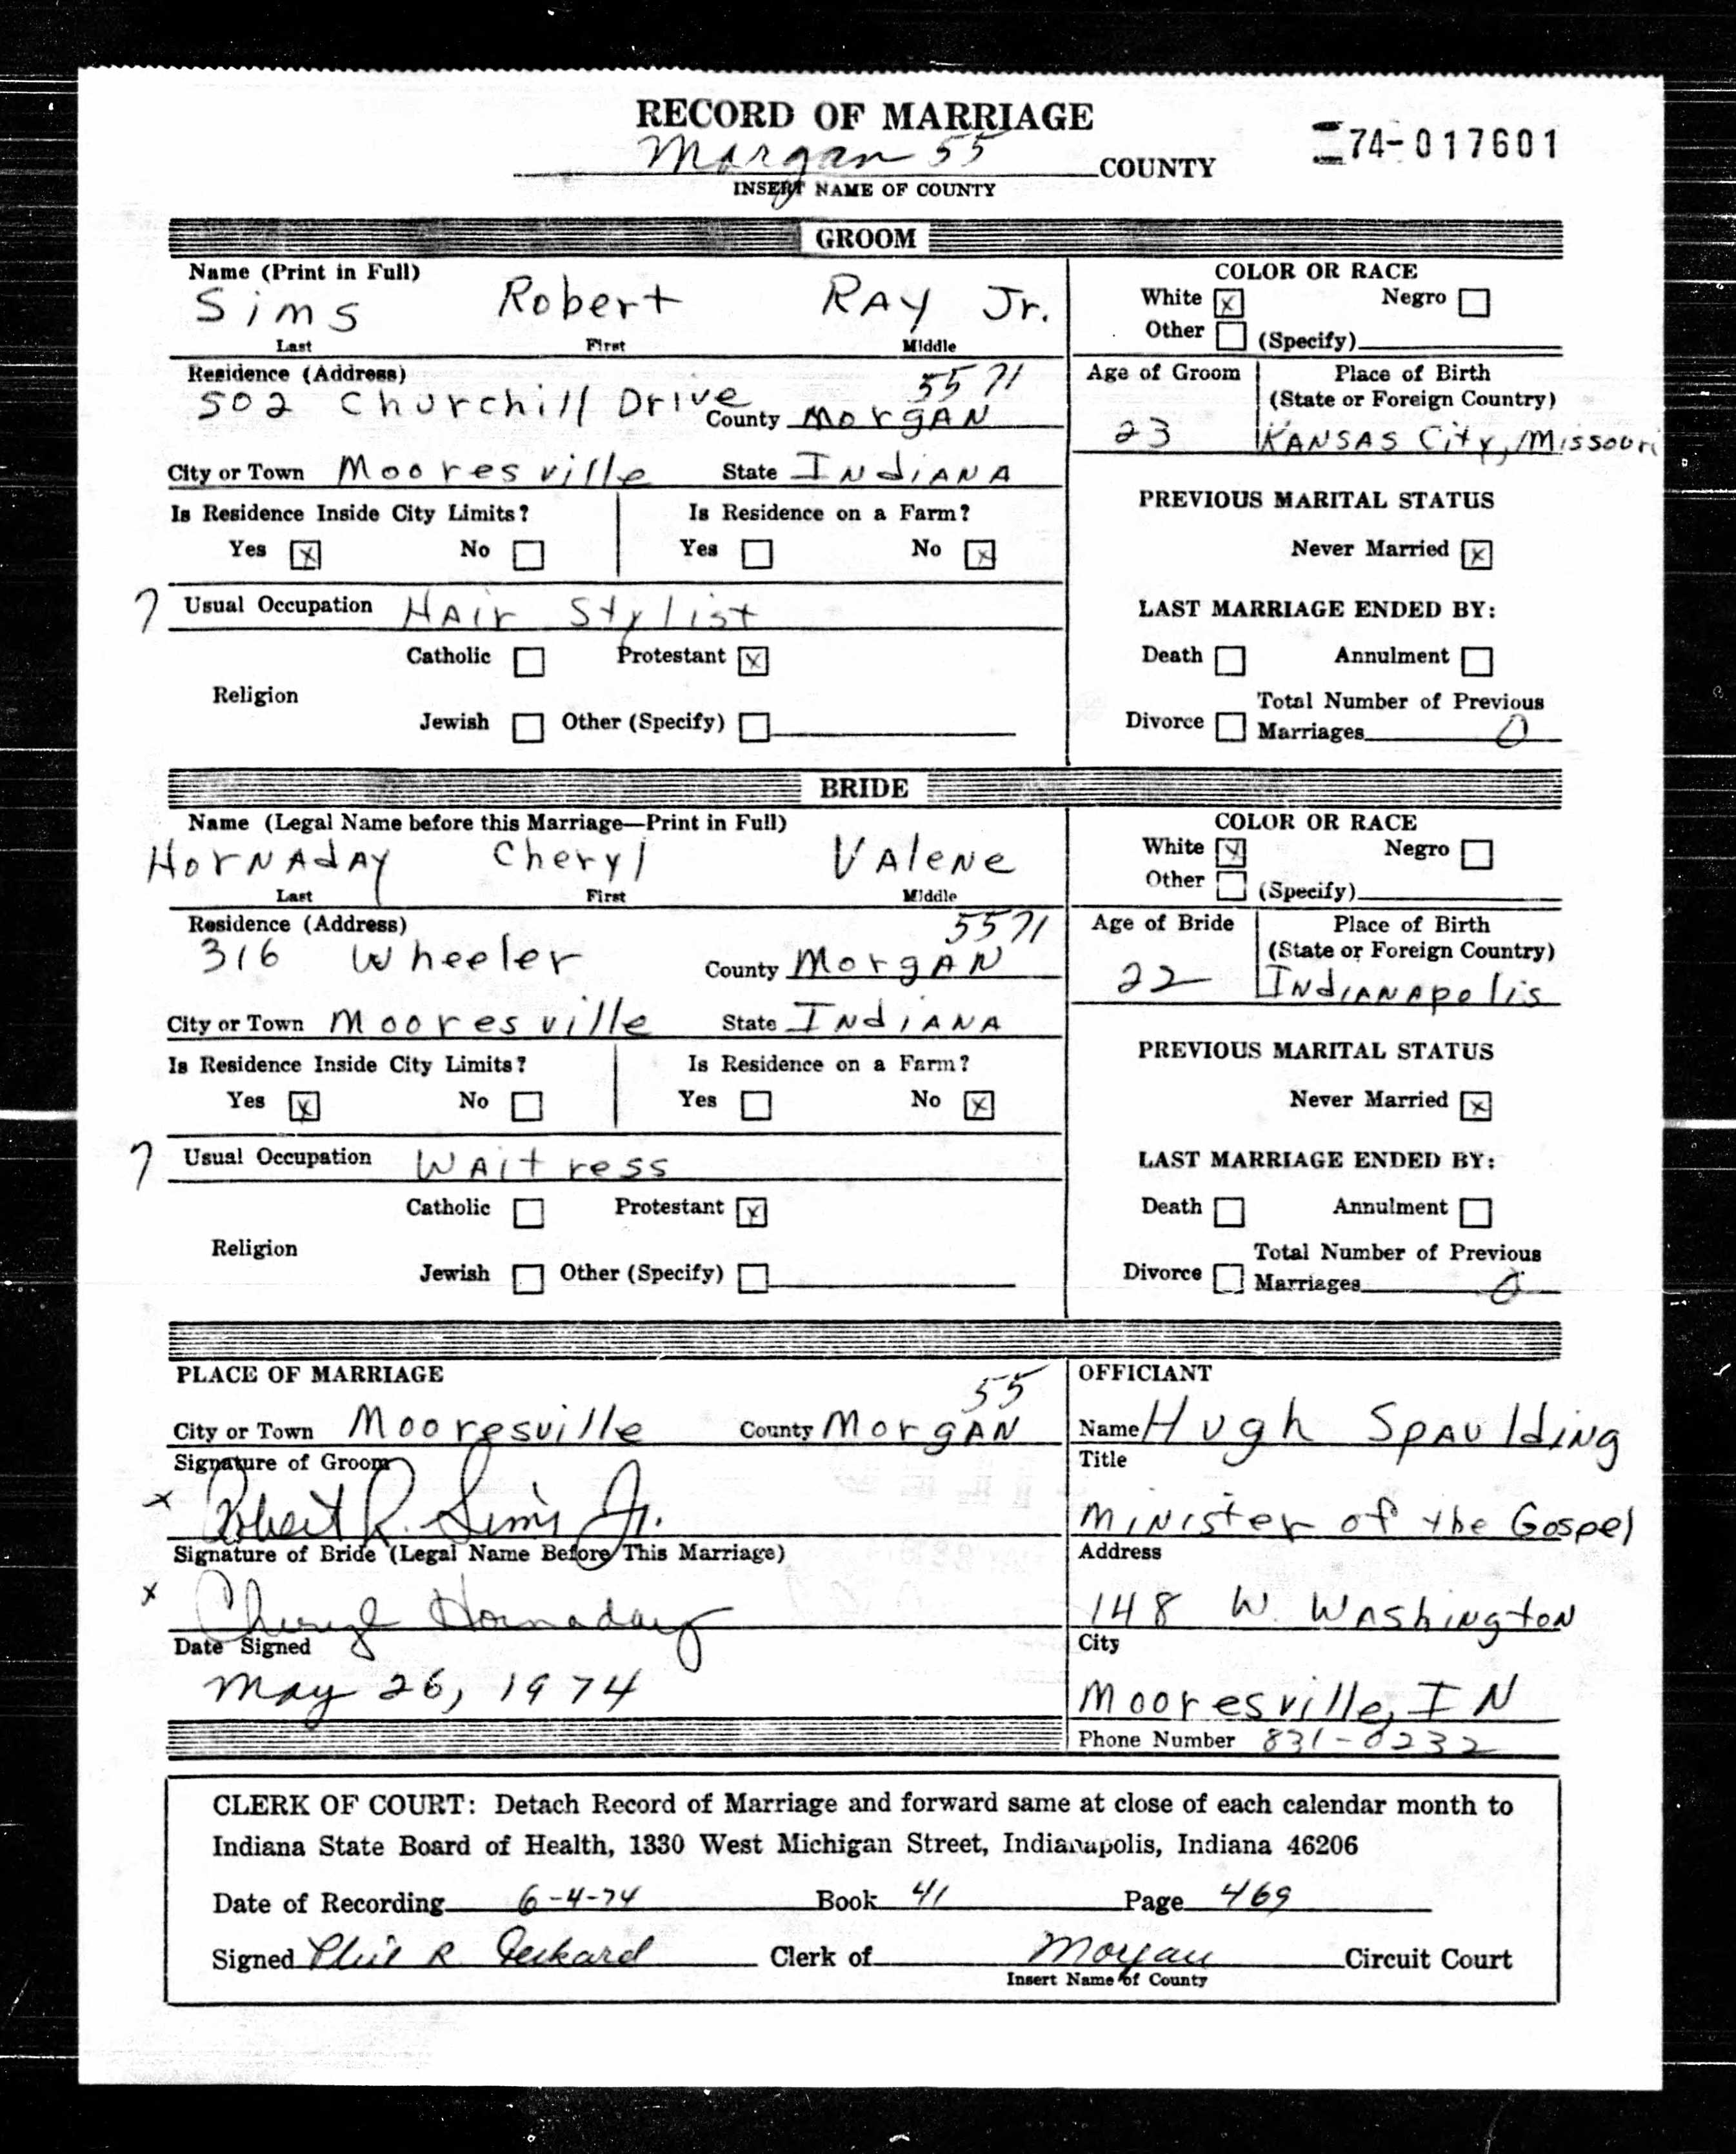 RECORD OF MARRIAGE
74-017601
Morgan 55 COUNTY
INSERT NAME OF COUNTY
GROOM
Name (Print in Full)
Sims Robert RAY Jr.
Last First Middle
COLOR OR RACE
White x Negro
Other (Specify)
Residence (Address) 5571
502 Churchill Drive County MorgAN
Age of Groom Place of Birth
(State or Foreign Country)
23 KANSAS City, Missouri
City or Town Mooresville State INdiANA
Is Residence Inside City Limits? Is Residence on a Farm?
Yes x No Yes No x
PREVIOUS MARITAL STATUS
Never Married x
7 Usual Occupation HAir Stylist
LAST MARRIAGE ENDED BY:
Catholic Protestant x
Death Annulment
Religion
Jewish Other (Specify)
Total Number of Previous
Divorce Marriages 0
BRIDE
Name (Legal Name before this Marriage—Print in Full)
HorNAdAY Cheryl VAleNe
Last First Middle
COLOR OR RACE
White x Negro
Other (Specify)
Residence (Address) 5571
316 Wheeler County MorgAN
Age of Bride Place of Birth
(State or Foreign Country)
22 INdiANApolis
City or Town Mooresville State INdiANA
Is Residence Inside City Limits? Is Residence on a Farm?
Yes x No Yes No x
PREVIOUS MARITAL STATUS
Never Married x
7 Usual Occupation WAitress
LAST MARRIAGE ENDED BY:
Catholic Protestant x
Death Annulment
Religion
Jewish Other (Specify)
Total Number of Previous
Divorce Marriages 0
PLACE OF MARRIAGE 55
City or Town Mooresville County MorgAN
Signature of Groom
x Robert R. Sims Jr.
Signature of Bride (Legal Name Before This Marriage)
x Cheryl Hornaday
Date Signed
May 26, 1974
OFFICIANT
Name Hugh SpAuldiNg
Title
MiNister of the Gospel
Address
148 W. WAshiNgtoN
City
Mooresville, IN
Phone Number 831-0232
CLERK OF COURT: Detach Record of Marriage and forward same at close of each calendar month to
Indiana State Board of Health, 1330 West Michigan Street, Indianapolis, Indiana 46206
Date of Recording 6-4-74 Book 41 Page 469
Signed R. Clerk of Morgan Circuit Court
Insert Name of County